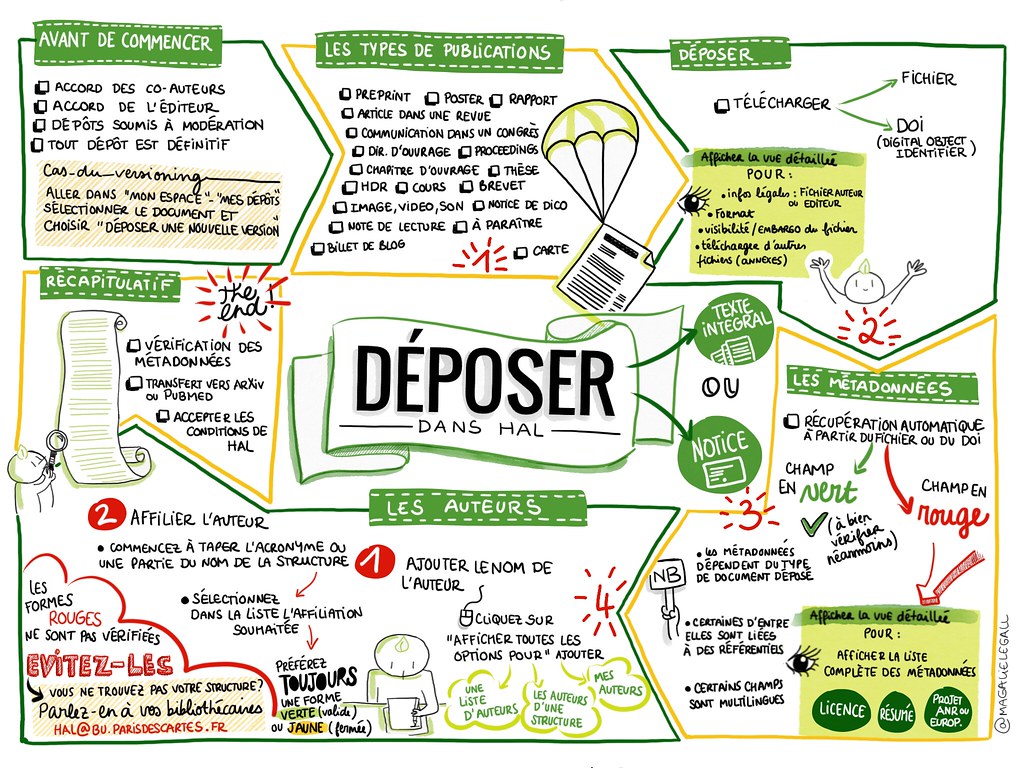 AVANT DE COMMENCER
ACCORD DES CO-AUTEURS
ACCORD DE L'ÉDITEUR
DÉPÔTS SOUMIS À MODÉRATION
TOUT DÉPÔT EST DÉFINITIF
Cas du versioning
ALLER DANS "MON ESPACE" - "MES DÉPÔTS"
SÉLECTIONNER LE DOCUMENT ET
CHOISIR "DÉPOSER UNE NOUVELLE VERSION"
LES TYPES DE PUBLICATIONS
PREPRINT POSTER RAPPORT
ARTICLE DANS UNE REVUE
COMMUNICATION DANS UN CONGRÈS
DIR. D'OUVRAGE PROCEEDINGS
CHAPITRE D'OUVRAGE THÈSE
HDR COURS BREVET
IMAGE, VIDEO, SON NOTICE DE DICO
NOTE DE LECTURE À PARAÎTRE
BILLET DE BLOG CARTE
1
DÉPOSER
TÉLÉCHARGER
FICHIER
DOI
(DIGITAL OBJECT
IDENTIFIER)
Afficher la vue détaillée
POUR :
infos légales : FICHIER AUTEUR
OU EDITEUR
Format
visibilité/EMBARGO du fichier
télécharger d'autres
fichiers (ANNEXES)
2
DÉPOSER
DANS HAL
TEXTE
INTÉGRAL
OU
NOTICE
LES MÉTADONNÉES
RÉCUPÉRATION AUTOMATIQUE
À PARTIR DU FICHIER OU DU DOI
CHAMP
EN vert
(à bien
vérifier
néanmoins)
CHAMP EN
rouge
3
NB
LES MÉTADONNÉES
DÉPENDENT DU TYPE
DE DOCUMENT DÉPOSÉ
CERTAINES D'ENTRE
ELLES SONT LIÉES
À DES RÉFÉRENTIELS
CERTAINS CHAMPS
SONT MULTILINGUES
Afficher la vue détaillée
POUR :
AFFICHER LA LISTE
COMPLÈTE DES MÉTADONNÉES
LICENCE
RÉSUMÉ
PROJET
ANR OU
EUROP.
LES AUTEURS
1 AJOUTER LE NOM DE
L'AUTEUR
CLIQUEZ SUR
"AFFICHER TOUTES LES
OPTIONS POUR" AJOUTER
UNE
LISTE
D'AUTEURS
LES AUTEURS
D'UNE
STRUCTURE
MES
AUTEURS
4
2 AFFILIER L'AUTEUR
COMMENCEZ À TAPER L'ACRONYME OU
UNE PARTIE DU NOM DE LA STRUCTURE
SÉLECTIONNEZ
DANS LA LISTE L'AFFILIATION
SOUHAITÉE
PRÉFÉREZ
TOUJOURS
UNE FORME
VERTE (valide)
OU JAUNE (fermée)
LES
FORMES
ROUGES
NE SONT PAS VÉRIFIÉES
EVITEZ-LES
VOUS NE TROUVEZ PAS VOTRE STRUCTURE?
Parlez-en à vos bibliothécaires
HAL@BU.PARISDESCARTES.FR
RÉCAPITULATIF
the
end!
VÉRIFICATION DES
MÉTADONNÉES
TRANSFERT VERS ARXIV
OU PUBMED
ACCEPTER LES
CONDITIONS DE
HAL
@MAGALIELEGALL